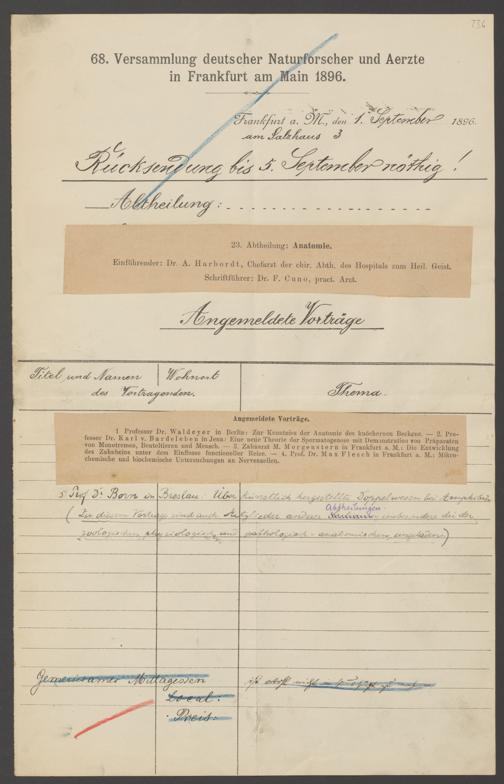 736
68. Versammlung deutscher Naturforscher und Aerzte
in Frankfurt am Main 1896.
Frankfurt a. M., den 1. September 1896.
am Salzhaus 3
Rücksendung bis 5. September nöthig!
Abtheilung:
23. Abtheilung: Anatomie.
Einführender: Dr. A. Harbordt, Chefarzt der chir. Abth. des Hospitals zum Heil. Geist.
Schriftführer: Dr. F. Cuno, pract. Arzt.
Angemeldete Vorträge
Titel und Namen Wohnort
des Vortragenden. Thema.
Angemeldete Vorträge.
1 Professor Dr. Waldeyer in Berlin: Zur Kenntniss der Anatomie des knöchernen Beckens. — 2. Pro-
fessor Dr. Karl v. Bardeleben in Jena: Eine neue Theorie der Spermatogenese mit Demonstration von Präparaten
von Monotremen, Beuteltieren und Mensch. — 3. Zahnarzt M. Morgenstern in Frankfurt a. M.: Die Entwicklung
des Zahnbeins unter dem Einflusse functioneller Reize. — 4. Prof. Dr. Max Flesch in Frankfurt a. M.: Mikro-
chemische und biochemische Untersuchungen an Nervenzellen.
5 Prof Dr Born in Breslau. Über künstlich hergestellte Doppelwesen bei Amphibien
Abtheilungen
(Zu diesem Vortrage sind auch Mitglieder anderer insbesondere die der
zoologischen physiologischen und pathologisch-anatomischen eingeladen)
Gemeinsames Mittagessen
Local:
Preis: